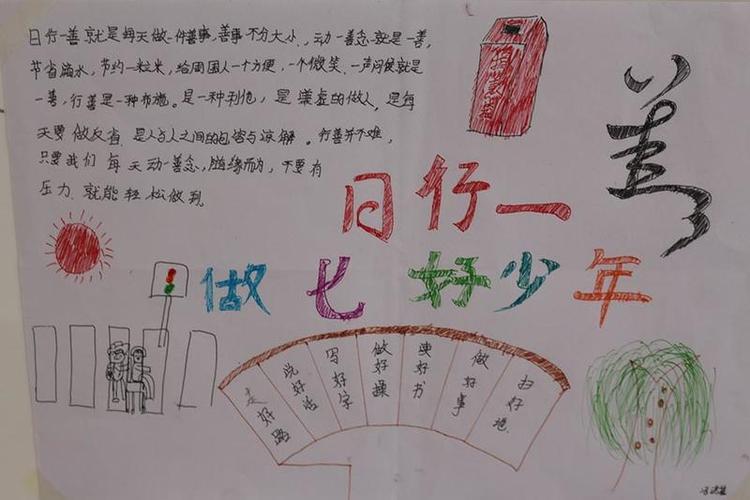 日行一善就是每天做一件善事,善事不分大小,动一善念就是一善,
节省滴水,节约一粒米,给周围人一个方便,一个微笑、一声问候就是
一善,行善是一种布施。是一种利他,是谦虚的做人,是每
天要做反省.是人与人之间的包容与谅解。行善并不难,
只要我们每天动一善念,随缘而为,不要有
压力.就能轻松做到
日行一善
做七好少年
走好路
说好话
写好字
做好操
读好书
做好事
扫好地